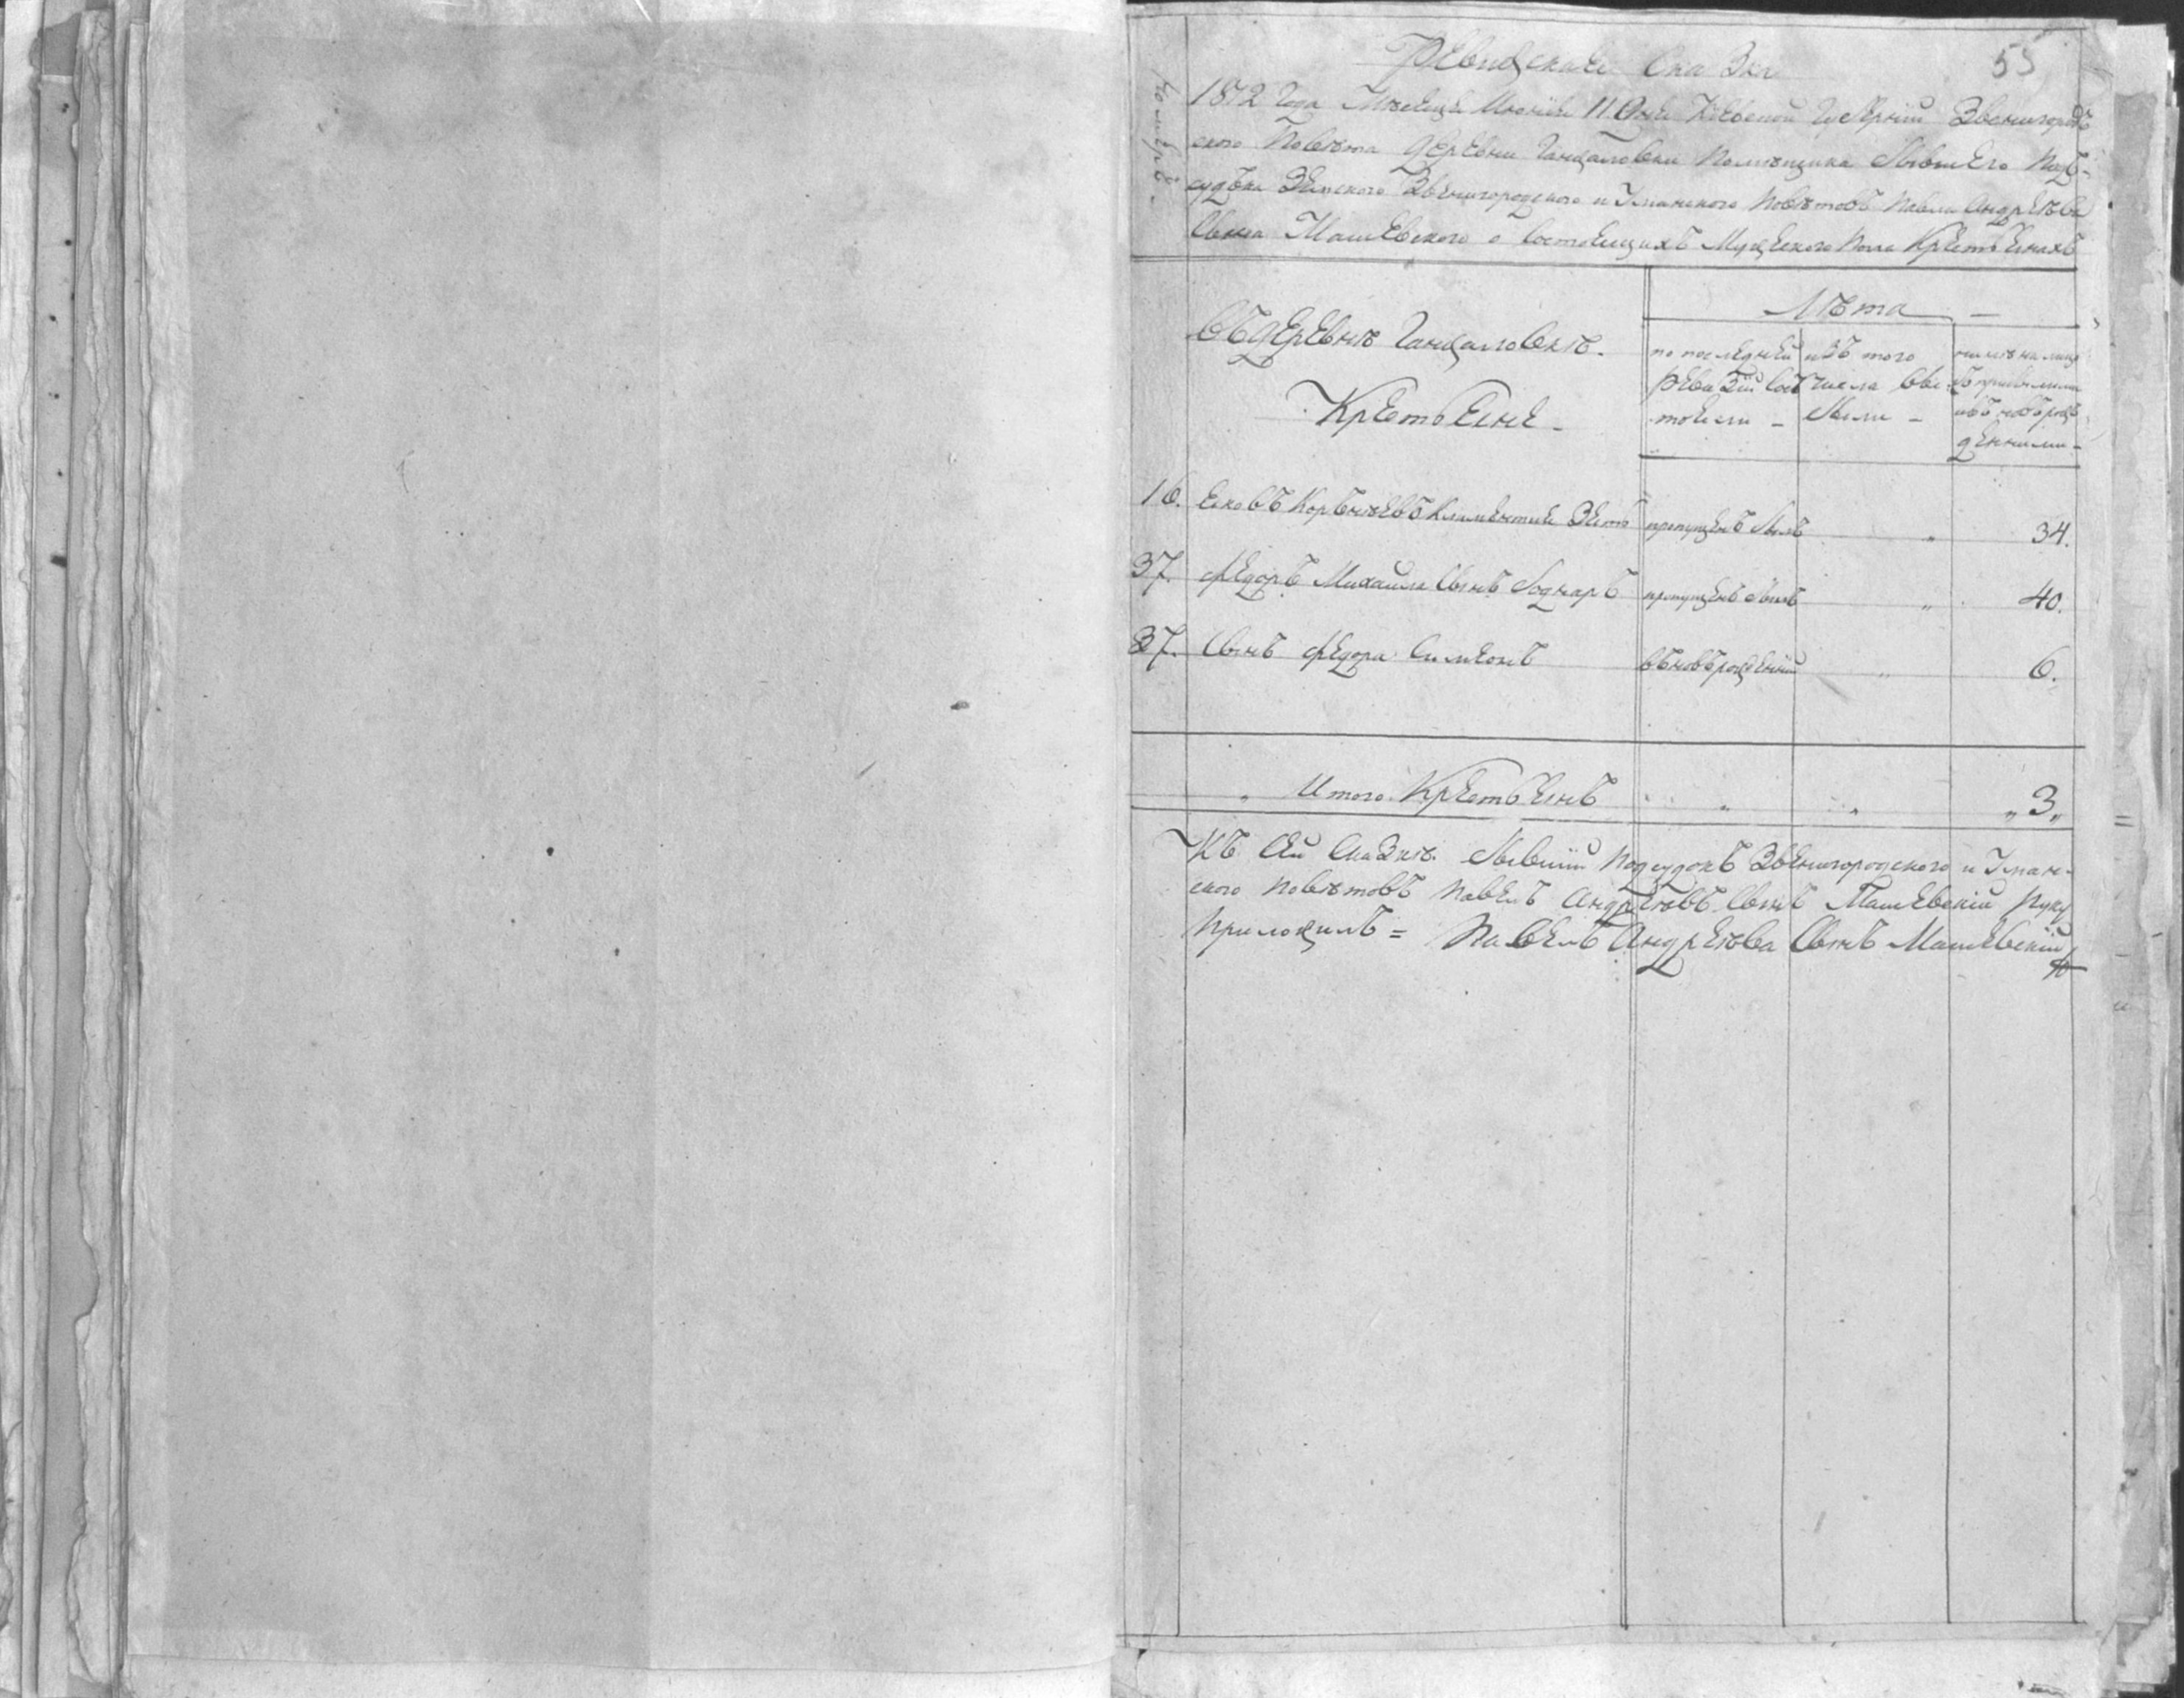 55
Ревизская Сказка
1812 Года Месеца Июния 11 Дня Киевской Губернии Звенигород-
ского Повета Деревни Ганжаловки Помещика бывшего под-
судка Земского Звенигородского и Уманского Поветовъ Павла Андреева
Сына Машевского о Состоящихъ Мужеского Пола Крестьянахъ
номеръ
Въ Деревнѣ Ганжаловкѣ.
Крестьяне
Лѣта
по последней Ревизіи состояли
изъ того числа выбыли
ныне на лицо
изъ новорожденными
16. Яковъ Зять пропущенъ былъ „ 34.
37. Федоръ Михайла Сынъ Боднаръ пропущенъ былъ „ 40.
37. Сынъ Федора Симеонъ въ новърожденнии „ 6.
„ Итого Крестьянъ „ „ „3„
Къ Сей Сказкѣ бывшии Подсудокъ Звенигородского и Уман-
ского Поветовъ Павелъ Андреевъ Сынъ Машевскій руку
Приложилъ = Павелъ Андреева Сынъ Машевскій